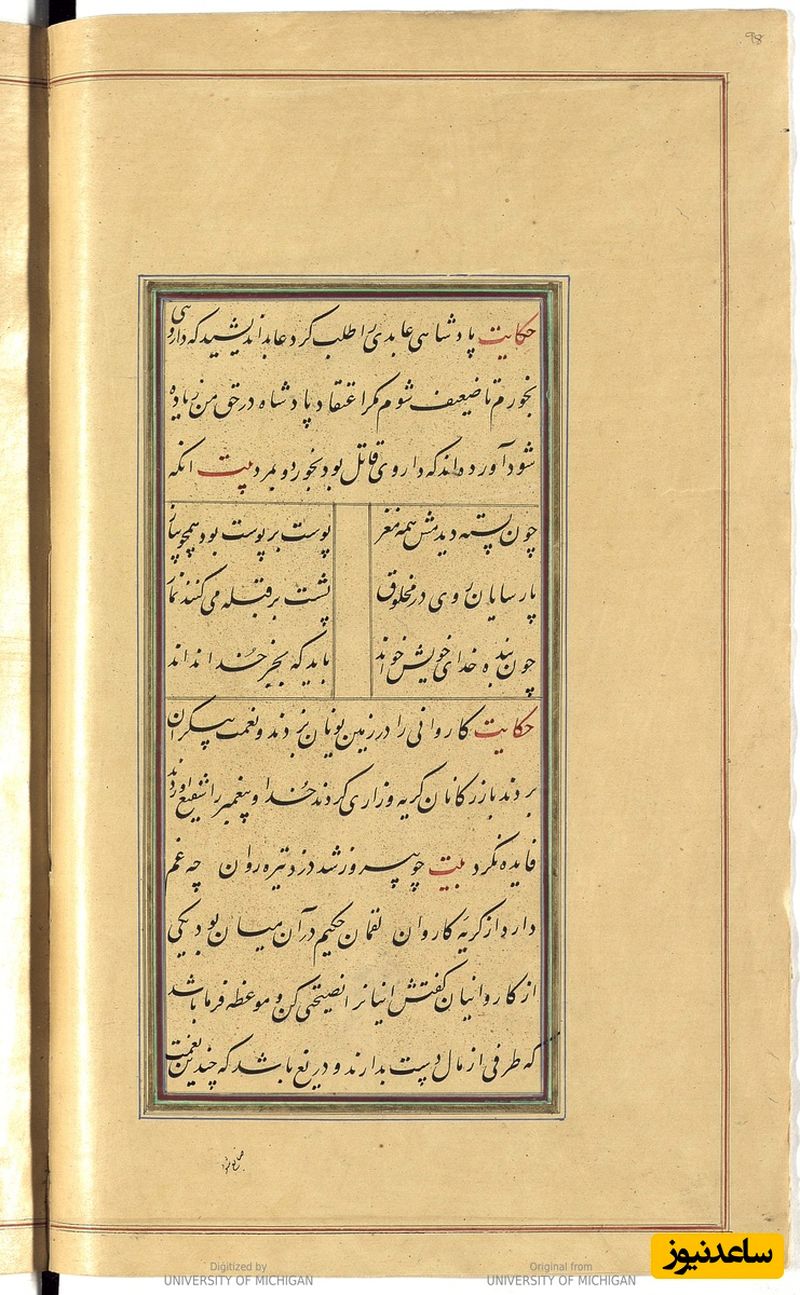 ۹۸
حکایت پادشاهی عابدی را طلب کرد عابد اندیشید که داروهی
بخورم تا ضعیف شوم مگر اعتقاد پادشاه در حق من زیاده
شود آورده‌اند که داروی قاتل بود بخورد و بمرد بیت انکه
چون پسته دیدمش همه مغز پوست بر پوست بود همچو پیاز
پارسایان روی در مخلوق پشت بر قبله می کنند نماز
چون بنده خدای خویش خواند باید که بجز خدا نداند
حکایت کاروانی را در زمین یونان بزدند و نعمت بیکران
بردند بازرکانان کریه و زاری کردند خدا و پیغمبر را شفیع اوردند
فایده نکرد بیت چو پیروز شد دزد تیره روان چه غم
دارد از کریه کاروان لقمان حکیم در آن میان بود یکی
از کاروانیان کفتش اینانرا نصیحتی کن و موعظه فرما باشد
که طرفی از مال دست بدارند و دریغ باشد که چندین نعمت
ضایع شود
Digitized by
UNIVERSITY OF MICHIGAN
Original from
UNIVERSITY OF MICHIGAN
ساعدنیوز